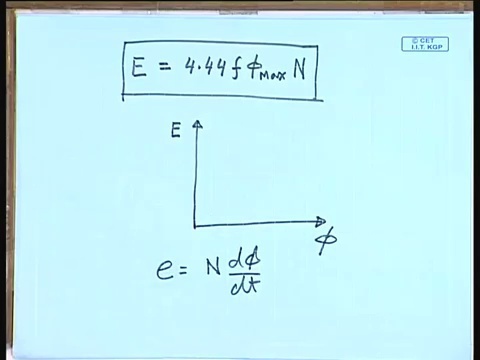 © CET
I.I.T. KGP
E = 4.44 f ϕMax N
E
ϕ
e = N dϕ/dt